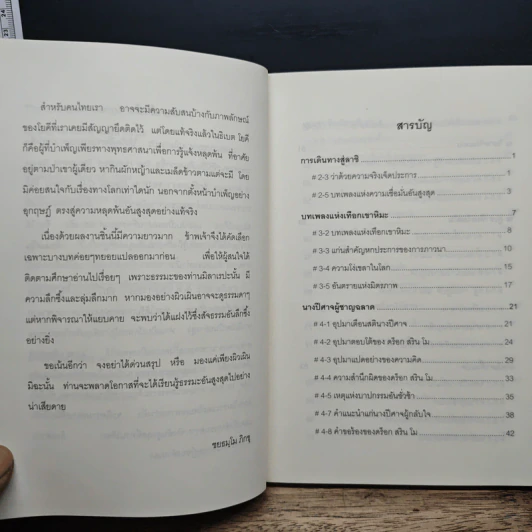 สำหรับคนไทยเรา อาจจะมีความสับสนบ้างกับภาพลักษณ์
ของโยคีที่เราเคยมีสัญญายึดติดไว้ แต่โดยแท้จริงแล้วในธิเบต โยคี
ก็คือผู้ที่บำเพ็ญเพียรทางพุทธศาสนาเพื่อการรู้แจ้งหลุดพ้น ที่อาศัย
อยู่ตามป่าเขาผู้เดียว หากินผักหญ้าและเมล็ดข้าวตามแต่จะมี โดย
มิค่อยสนใจกับเรื่องทางโลกเท่าใดนัก นอกจากตั้งหน้าบำเพ็ญอย่าง
อุกฤษฏ์ ตรงสู่ความหลุดพ้นอันสูงสุดอย่างแท้จริง
เนื่องด้วยผลงานชิ้นนี้มีความยาวมาก ข้าพเจ้าจึงได้คัดเลือก
เฉพาะบางบทค่อยๆทยอยแปลออกมาก่อน เพื่อให้ผู้สนใจได้
ติดตามศึกษาอ่านไปเรื่อยๆ เพราะธรรมะของท่านมิลาเรปะนั้น มี
ความลึกซึ้งและลุ่มลึกมาก หากมองอย่างผิวเผินอาจจะดูธรรมดาๆ
แต่หากพิจารณาให้แยบคาย จะพบว่าได้แฝงไว้ซึ่งสัจธรรมอันลึกซึ้ง
อย่างยิ่ง
ขอเน้นอีกว่า จงอย่าได้ด่วนสรุป หรือ มองแค่เพียงผิวเผิน
มิฉะนั้น ท่านจะพลาดโอกาสที่จะได้เรียนรู้ธรรมะอันสูงสุดไปอย่าง
น่าเสียดาย
ชยธมฺโม ภิกขุ
สารบัญ
การเดินทางสู่ลาชิ 1
# 2-3 ว่าด้วยความจริงเจ็ดประการ 1
# 2-5 บทเพลงแห่งความเชื่อมั่นอันสูงสุด 3
บทเพลงแห่งเทือกเขาหิมะ 7
# 3-2 บทเพลงแห่งเทือกเขาหิมะ 8
# 3-3 แก่นสำคัญหกประการของการภาวนา 10
# 3-4 ความโง่เขลาในโลก 15
# 3-5 อันตรายแห่งมิตรภาพ 17
นางปีศาจผู้ชาญฉลาด 21
# 4-1 อุปมาเตือนสตินางปีศาจ 21
# 4-2 อุปมาตอบโต้ของ ดร็อก สริน โม 24
# 4-3 อุปมาแปดอย่างของความคิด 29
# 4-4 ความสำนึกผิดของดร็อก สริน โม 33
# 4-5 เหตุแห่งบาปกรรมอันชั่วช้า 36
# 4-7 คำแนะนำแก่นางปีศาจผู้กลับใจ 38
# 4-8 คำขอร้องของดร็อก สริน โม 42